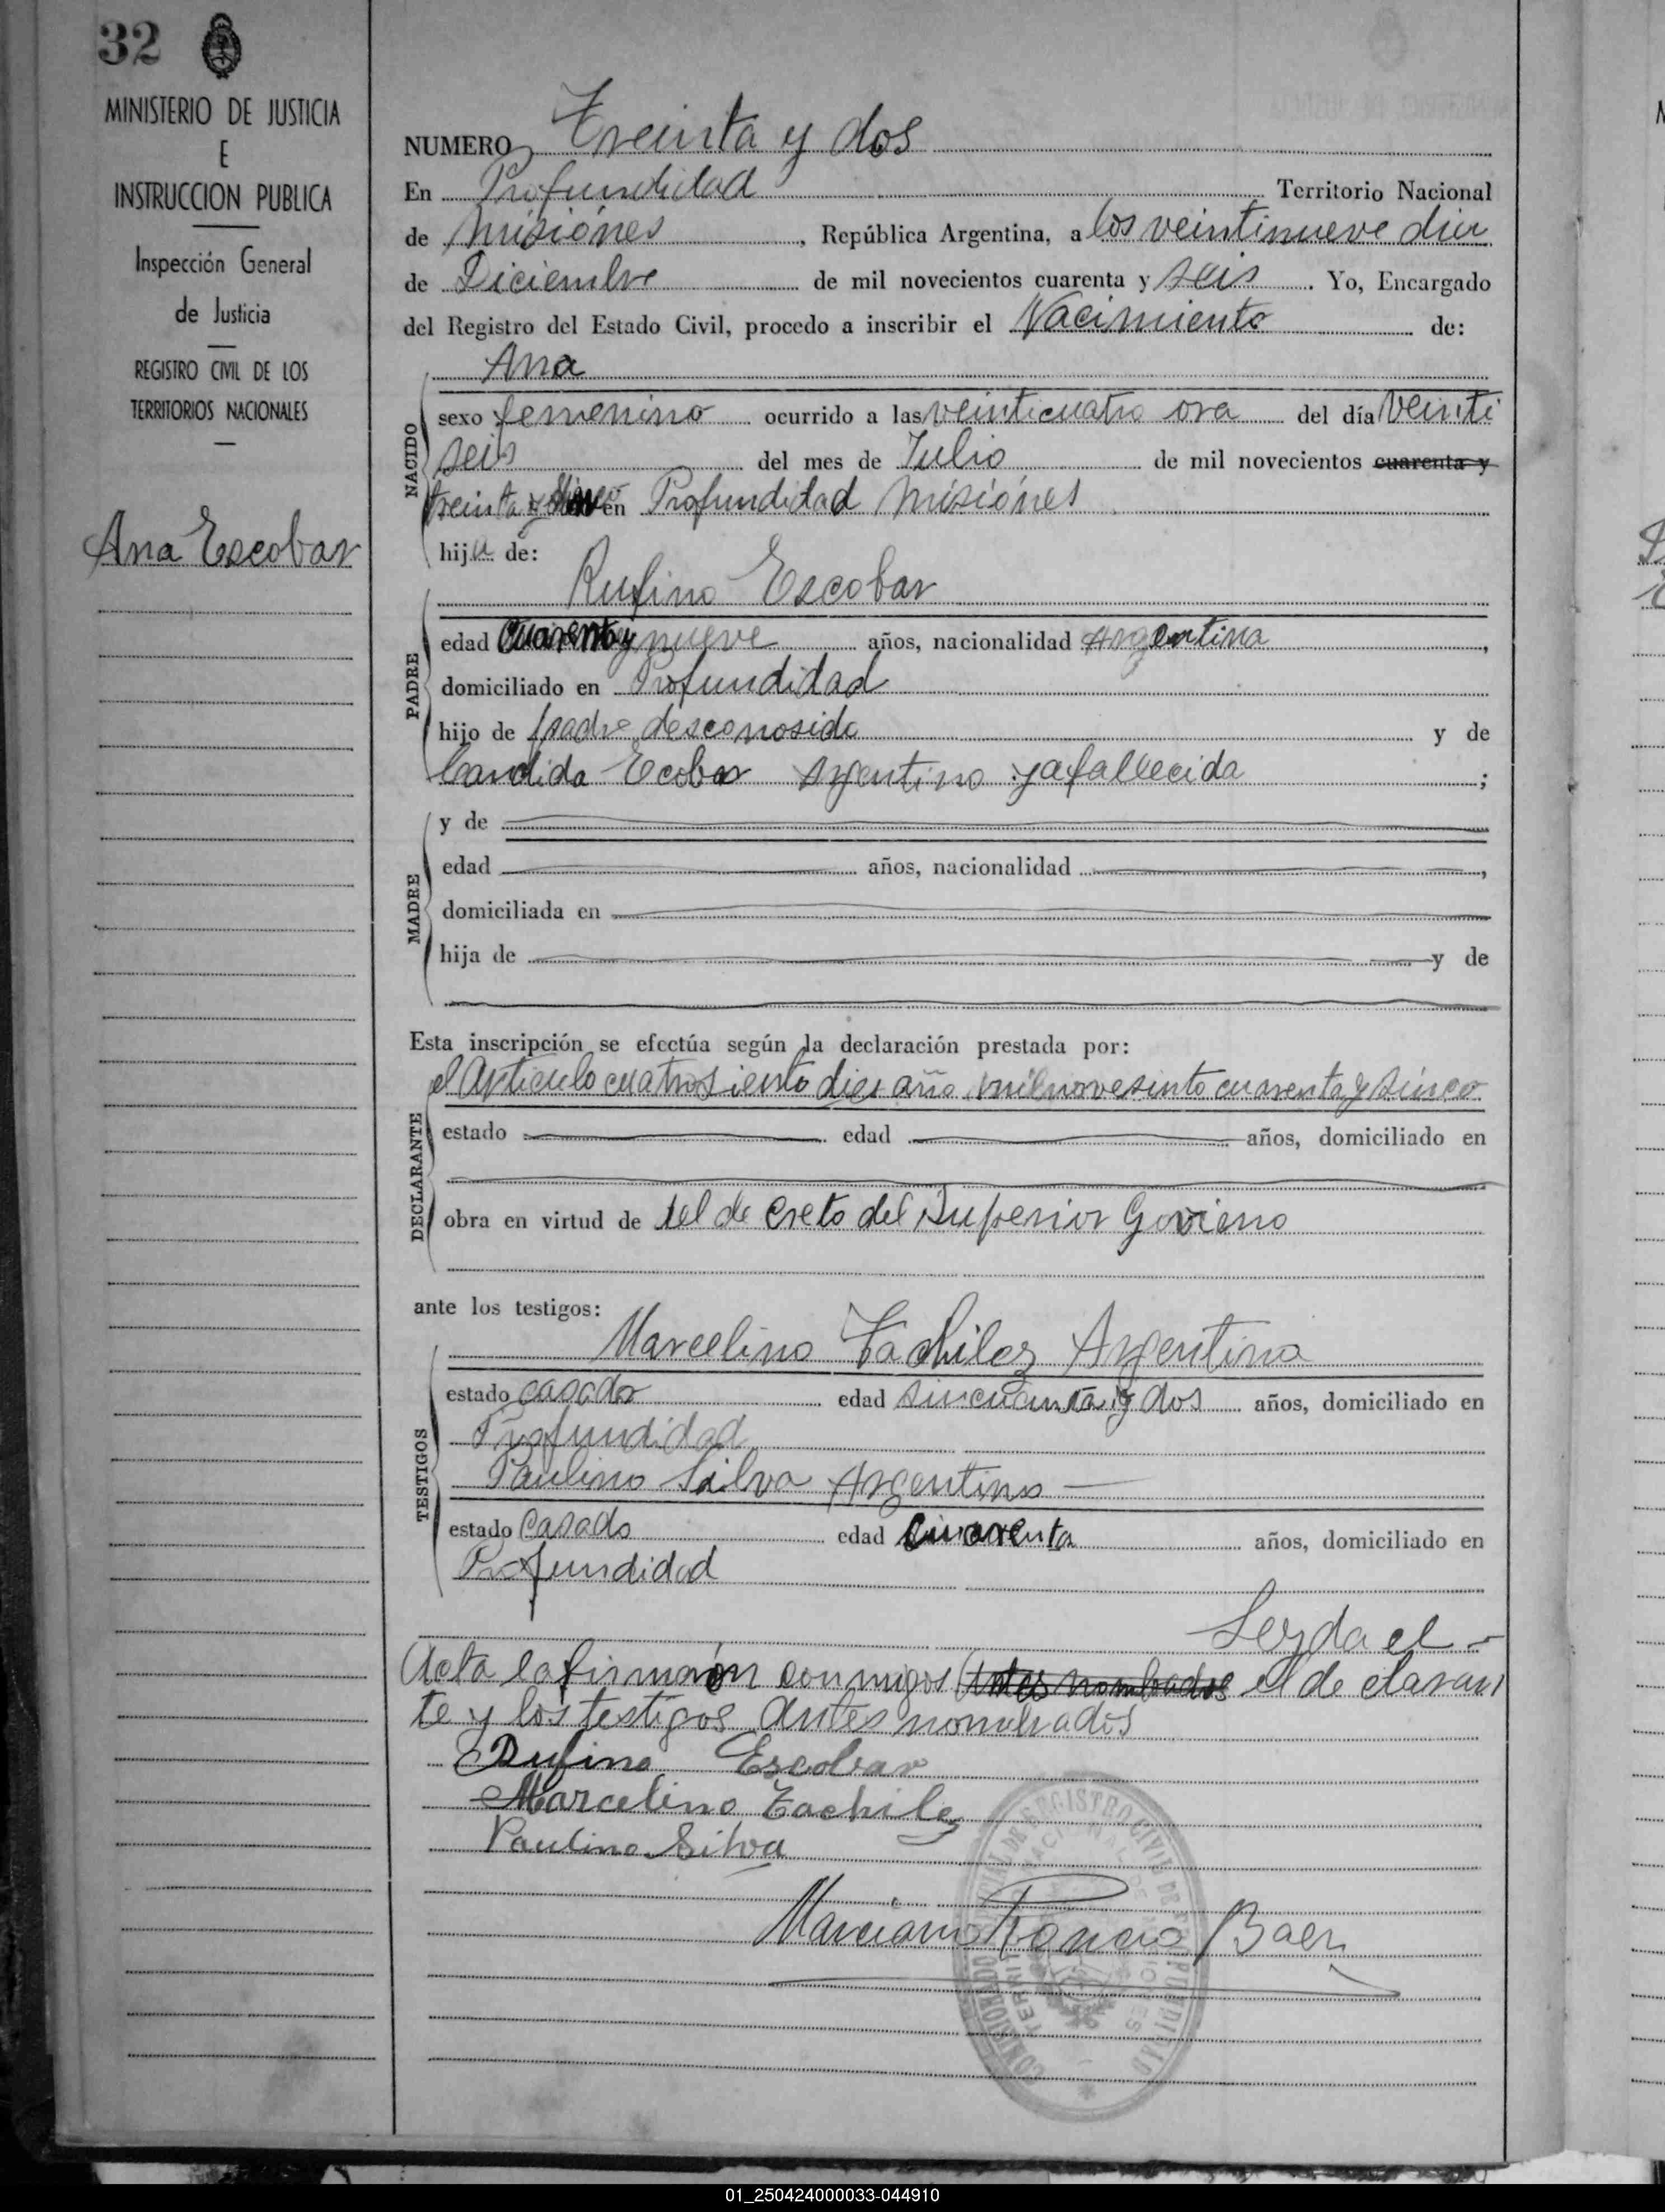 32
MINISTERIO DE JUSTICIA
E
INSTRUCCION PUBLICA
Inspección General
de Justicia
REGISTRO CIVIL DE LOS
TERRITORIOS NACIONALES
Ana Escobar
NUMERO Treinta y dos
En Profundidad Territorio Nacional
de Misiónes, República Argentina, a los veintinueve dia
de Diciembre de mil novecientos cuarenta y seis. Yo, Encargado
del Registro del Estado Civil, procedo a inscribir el Nacimiento de:
Ana
NACIDO
sexo femenino ocurrido a las veinticuatro ora del día Veinti
seis del mes de Julio de mil novecientos cuarenta y
treinta y en Profundidad Misiónes
hija de:
Rufino Escobar
PADRE
edad Cuarenta y nueve años, nacionalidad Argentina,
domiciliado en Profundidad
hijo de padre desconosido y de
Candida Ecobar Argentino ya fallecida;
MADRE
y de
edad años, nacionalidad,
domiciliada en
hija de y de
Esta inscripción se efectúa según la declaración prestada por:
el Articulo cuatrosiento dies año milnovesinto cuarenta y sinco
DECLARANTE
estado edad años, domiciliado en
obra en virtud de del de creto del Superior Govierno
ante los testigos:
Marcelino Tachilez Argentina
TESTIGOS
estado casado edad sincuenta y dos años, domiciliado en
Profundidad
Paulino Silva Argentino
estado Casado edad años, domiciliado en
Profundidad
Leyda el
Acta la firmarón conmigos Antes nombrados el de claran
te y los testigos Antes nombrados
Rufino Escobar
Marcelino Tachilez
Paulino Silva
Marciano Baez
REGISTRO CIVIL DE PROFUNDIDAD
01_250424000033-044910